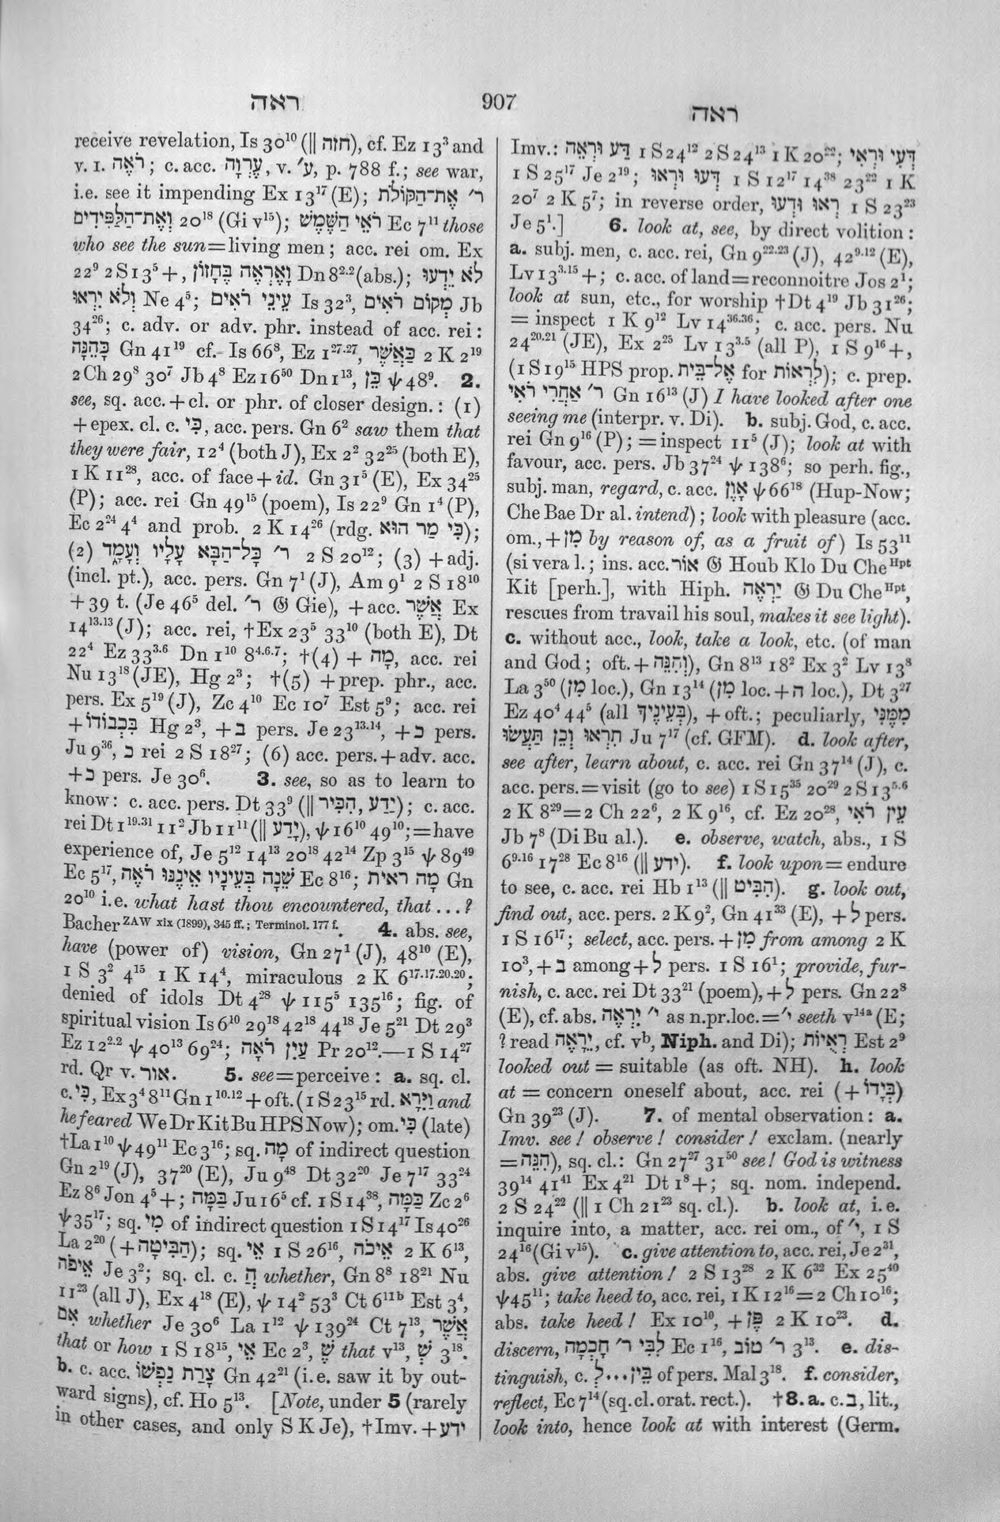 ראה
907
ראה
receive revelation, Is 30¹⁰ (|| חזה), cf. Ez 13³ and
v. 1. רֹאֶה; c. acc. עֶרְוָה, v. ע׳, p. 788 f.; see war,
i.e. see it impending Ex 13¹⁷ (E); ר׳ אֶת־הַקּוֹלֹת
וְאֶת־הַלַּפִּידִים 20¹⁸ (Gi v¹⁵); רֹאֵי הַשָּׁמֶשׁ Ec 7¹¹ those
who see the sun=living men; acc. rei om. Ex
22⁹ 2 S 13⁵+, וָאֶרְאֶה בֶּחָזוֹן Dn 8²·² (abs.); לֹא יֵדְעוּ
וְלֹא יִרְאוּ Ne 4⁵; עֵינֵי רֹאִים Is 32³, מְקוֹם רֹאִים Jb
34²⁶; c. adv. or adv. phr. instead of acc. rei:
כָּהֵנָּה Gn 41¹⁹ cf. Is 66⁸, Ez 1²⁷·²⁷, כַּאֲשֶׁר 2 K 2¹⁹
2 Ch 29⁸ 30⁷ Jb 4⁸ Ez 16⁵⁰ Dn 1¹³, כֵּן ψ 48⁹. 2.
see, sq. acc. + cl. or phr. of closer design.: (1)
+ epex. cl. c. כִּי, acc. pers. Gn 6² saw them that
they were fair, 12⁴ (both J), Ex 2² 32²⁵ (both E),
1 K 11²⁸, acc. of face + id. Gn 31⁵ (E), Ex 34²⁵
(P); acc. rei Gn 49¹⁵ (poem), Is 22⁹ Gn 1⁴ (P),
Ec 2²⁴ 4⁴ and prob. 2 K 14²⁶ (rdg. כִּי מַר הוּא);
(2) ר׳ כָּל־הַבָּא עָלָיו וְעָמָד 2 S 20¹²; (3) +adj.
(incl. pt.), acc. pers. Gn 7¹ (J), Am 9¹ 2 S 18¹⁰
+ 39 t. (Je 46⁵ del. ר׳ 𝔊 Gie), + acc. אֲשֶׁר Ex
14¹³·¹³ (J); acc. rei, †Ex 23⁵ 33¹⁰ (both E), Dt
22⁴ Ez 33³·⁶ Dn 1¹⁰ 8⁴·⁶·⁷; †(4) + מָה, acc. rei
Nu 13¹⁸ (JE), Hg 2³; †(5) + prep. phr., acc.
pers. Ex 5¹⁹ (J), Zc 4¹⁰ Ec 10⁷ Est 5⁹; acc. rei
+ בִּכְבוֹדוֹ Hg 2³, + ב pers. Je 23¹³·¹⁴, + כ pers.
Ju 9³⁶, כ rei 2 S 18²⁷; (6) acc. pers. + adv. acc.
+ כ pers. Je 30⁶. 3. see, so as to learn to
know: c. acc. pers. Dt 33⁹ (|| יָדַע, הִכִּיר); c. acc.
rei Dt 1¹⁹·³¹ 11² Jb 11¹¹ (|| יָדַע), ψ 16¹⁰ 49¹⁰; =have
experience of, Je 5¹² 14¹³ 20¹⁸ 42¹⁴ Zp 3¹⁵ ψ 89⁴⁹
Ec 5¹⁷, שֵׁנָה בְּעֵינָיו אֵינֶנּוּ רֹאֶה Ec 8¹⁶; מָה רָאִיתָ Gn
20¹⁰ i.e. what hast thou encountered, that...?
Bacher ZAW xix (1899), 345 ff.; Terminol. 177 f. 4. abs. see,
have (power of) vision, Gn 27¹ (J), 48¹⁰ (E),
1 S 3² 4¹⁵ 1 K 14⁴, miraculous 2 K 6¹⁷·¹⁷·²⁰·²⁰;
denied of idols Dt 4²⁸ ψ 115⁵ 135¹⁶; fig. of
spiritual vision Is 6¹⁰ 29¹⁸ 42¹⁸ 44¹⁸ Je 5²¹ Dt 29³
Ez 12²·² ψ 40¹³ 69²⁴; עַיִן רֹאָה Pr 20¹².—1 S 14²⁷
rd. Qr v. אור. 5. see=perceive: a. sq. cl.
c. כִּי, Ex 3⁴ 8¹¹ Gn 1¹⁰·¹² + oft. (1 S 23¹⁵ rd. וַיִּרָא and
he feared We Dr Kit Bu HPS Now); om. כִּי (late)
†La 1¹⁰ ψ 49¹¹ Ec 3¹⁶; sq. מָה of indirect question
Gn 2¹⁹ (J), 37²⁰ (E), Ju 9⁴⁸ Dt 32²⁰ Je 7¹⁷ 33²⁴
Ez 8⁶ Jon 4⁵ +; בַּמָּה Ju 16⁵ cf. 1 S 14³⁸, כַּמָּה Zc 2⁶
ψ 35¹⁷; sq. מִי of indirect question 1 S 14¹⁷ Is 40²⁶
La 2²⁰ (+ הַבִּיטָה); sq. אֵי 1 S 26¹⁶, אֵיכֹה 2 K 6¹³,
אֵיפֹה Je 3²; sq. cl. c. הֲ whether, Gn 8⁸ 18²¹ Nu
11²³ (all J), Ex 4¹⁸ (E), ψ 14² 53³ Ct 6¹¹ᵇ Est 3⁴,
אִם whether Je 30⁶ La 1¹² ψ 139²⁴ Ct 7¹³, אֲשֶׁר
that or how 1 S 18¹⁵, אֵי Ec 2³, שֶׁ that v¹³, שֶׁ 3¹⁸.
b. c. acc. צָרַת נַפְשׁוֹ Gn 42²¹ (i.e. saw it by out-
ward signs), cf. Ho 5¹³. [Note, under 5 (rarely
in other cases, and only S K Je), †Imv. + ידע
Imv.: דַּע וּרְאֵה 1 S 24¹² 2 S 24¹³ 1 K 20²²; דְּעִי וּרְאִי
1 S 25¹⁷ Je 2¹⁹; דְּעוּ וּרְאוּ 1 S 12¹⁷ 14³⁸ 23²² 1 K
20⁷ 2 K 5⁷; in reverse order, רְאוּ וּדְעוּ 1 S 23²³
Je 5¹.] 6. look at, see, by direct volition:
a. subj. men, c. acc. rei, Gn 9²²·²³ (J), 42⁹·¹² (E),
Lv 13³·¹⁵ +; c. acc. of land=reconnoitre Jos 2¹;
look at sun, etc., for worship †Dt 4¹⁹ Jb 31²⁶;
= inspect 1 K 9¹² Lv 14³⁶·³⁶; c. acc. pers. Nu
24²⁰·²¹ (JE), Ex 2²⁵ Lv 13³·⁵ (all P), 1 S 9¹⁶ +,
(1 S 19¹⁵ HPS prop. אֶל־בֵּית for לִרְאוֹת); c. prep.
ר׳ אַחֲרֵי רֹאִי Gn 16¹³ (J) I have looked after one
seeing me (interpr. v. Di). b. subj. God, c. acc.
rei Gn 9¹⁶ (P); =inspect 11⁵ (J); look at with
favour, acc. pers. Jb 37²⁴ ψ 138⁶; so perh. fig.,
subj. man, regard, c. acc. אָוֶן ψ 66¹⁸ (Hup-Now;
Che Bae Dr al. intend); look with pleasure (acc.
om., + מִן by reason of, as a fruit of) Is 53¹¹
(si vera l.; ins. acc. אוֹר 𝔊 Houb Klo Du Che Hpt
Kit [perh.], with Hiph. יַרְאֶה 𝔊 Du Che Hpt,
rescues from travail his soul, makes it see light).
c. without acc., look, take a look, etc. (of man
and God; oft. + וְהִנֵּה), Gn 8¹³ 18² Ex 3² Lv 13⁸
La 3⁵⁰ (מִן loc.), Gn 13¹⁴ (מִן loc. + ה loc.), Dt 3²⁷
Ez 40⁴ 44⁵ (all בְּעֵינֶיךָ), + oft.; peculiarly, מִמֶּנִּי
תִרְאוּ וְכֵן תַּעֲשׂוּ Ju 7¹⁷ (cf. GFM). d. look after,
see after, learn about, c. acc. rei Gn 37¹⁴ (J), c.
acc. pers.=visit (go to see) 1 S 15³⁵ 20²⁹ 2 S 13⁵·⁶
2 K 8²⁹=2 Ch 22⁶, 2 K 9¹⁶, cf. Ez 20²⁸, עֵין רֹאִי
Jb 7⁸ (Di Bu al.). e. observe, watch, abs., 1 S
6⁹·¹⁶ 17²⁸ Ec 8¹⁶ (|| ידע). f. look upon=endure
to see, c. acc. rei Hb 1¹³ (|| הִבִּיט). g. look out,
find out, acc. pers. 2 K 9², Gn 41³³ (E), + לְ pers.
1 S 16¹⁷; select, acc. pers. + מִן from among 2 K
10³, + בְּ among + לְ pers. 1 S 16¹; provide, fur-
nish, c. acc. rei Dt 33²¹ (poem), + לְ pers. Gn 22⁸
(E), cf. abs. י׳ יִרְאֶה as n.pr.loc.=י׳ seeth v¹⁴ᵃ (E;
? read יֵרָאֶה, cf. vᵇ, Niph. and Di); רְאֻיוֹת Est 2⁹
looked out = suitable (as oft. NH). h. look
at = concern oneself about, acc. rei (+ בְּיָדוֹ)
Gn 39²³ (J). 7. of mental observation: a.
Imv. see! observe! consider! exclam. (nearly
=הִנֵּה), sq. cl.: Gn 27²⁷ 31⁵⁰ see! God is witness
39¹⁴ 41⁴¹ Ex 4²¹ Dt 1⁸ +; sq. nom. independ.
2 S 24²² (|| 1 Ch 21²³ sq. cl.). b. look at, i.e.
inquire into, a matter, acc. rei om., of י׳, 1 S
24¹⁶ (Gi v¹⁵). c. give attention to, acc. rei, Je 2³¹,
abs. give attention! 2 S 13²⁸ 2 K 6³² Ex 25⁴⁰
ψ 45¹¹; take heed to, acc. rei, 1 K 12¹⁶=2 Ch 10¹⁶;
abs. take heed! Ex 10¹⁰, + פֶּן 2 K 10²³. d.
discern, לִבִּי ר׳ חָכְמָה Ec 1¹⁶, ר׳ טוֹב 3¹³. e. dis-
tinguish, c. בֵּין...לְ of pers. Mal 3¹⁸. f. consider,
reflect, Ec 7¹⁴ (sq. cl. orat. rect.). †8. a. c. ב, lit.,
look into, hence look at with interest (Germ.